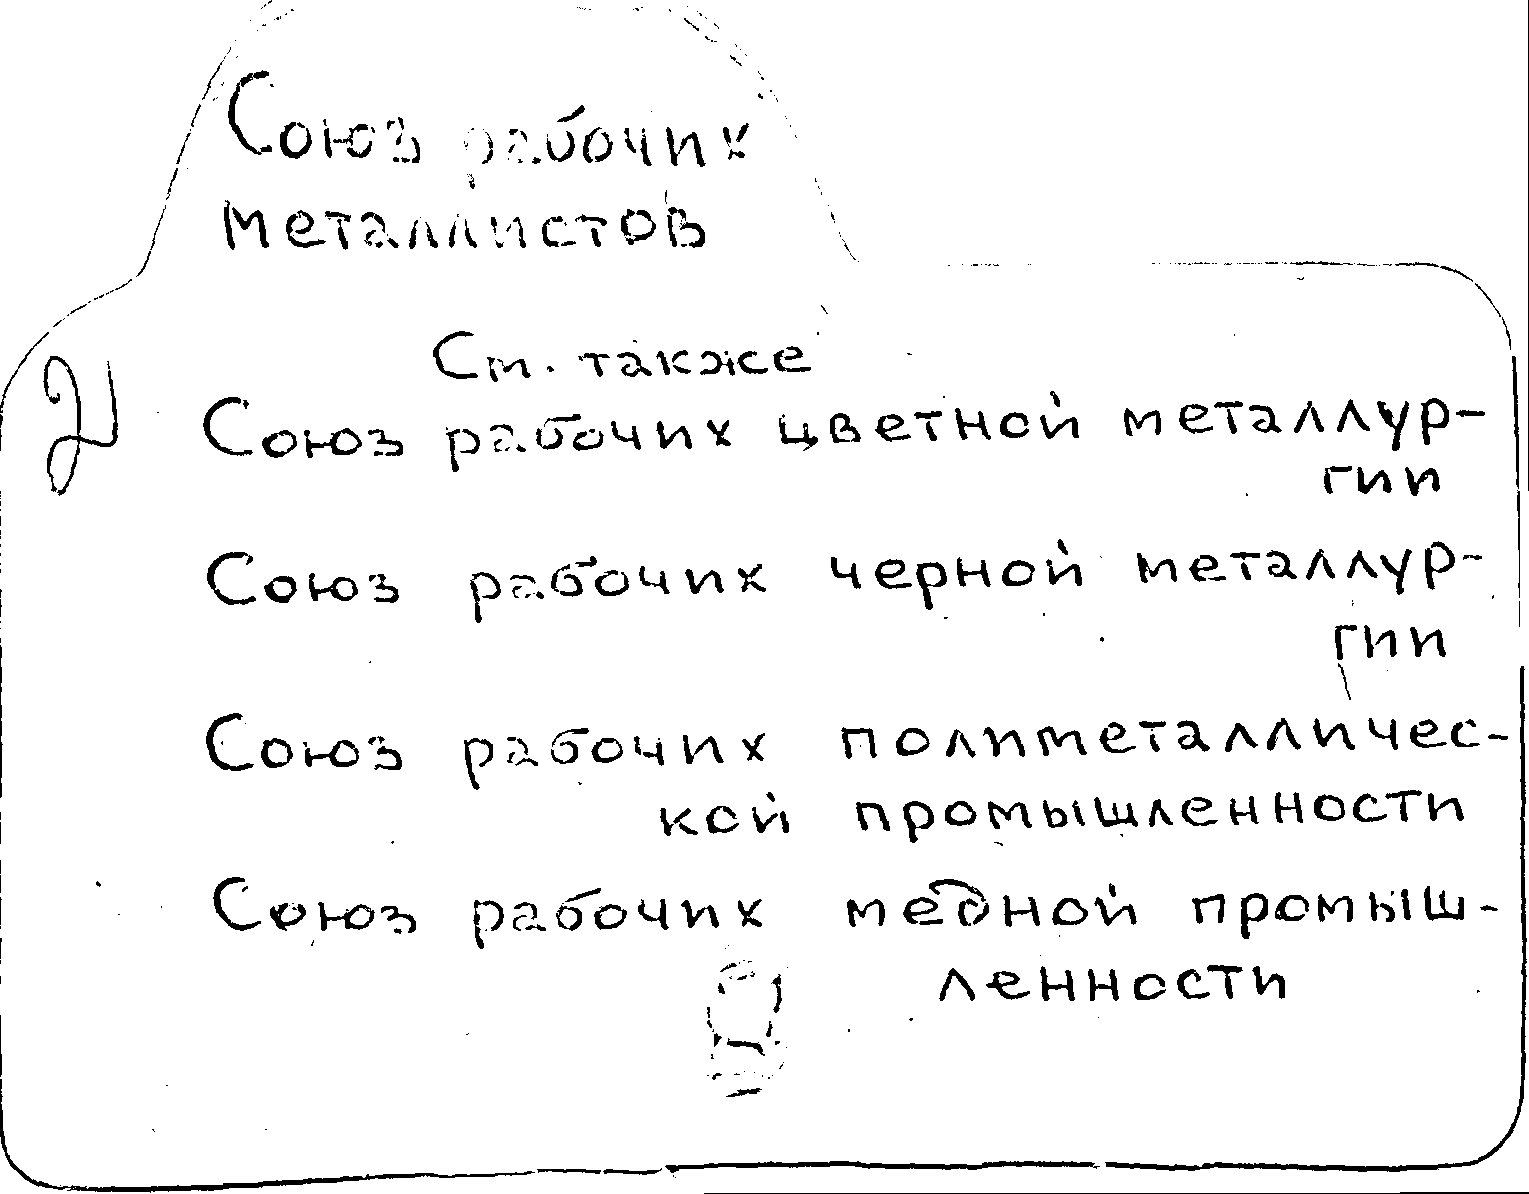 Союз рабочих
металлистов
См. также
Союз рабочих цветной металлур-
гии
Союз рабочих черной металлур-
гии
Союз рабочих полиметалличес-
кой промышленности
Союз рабочих медной промыш-
ленности